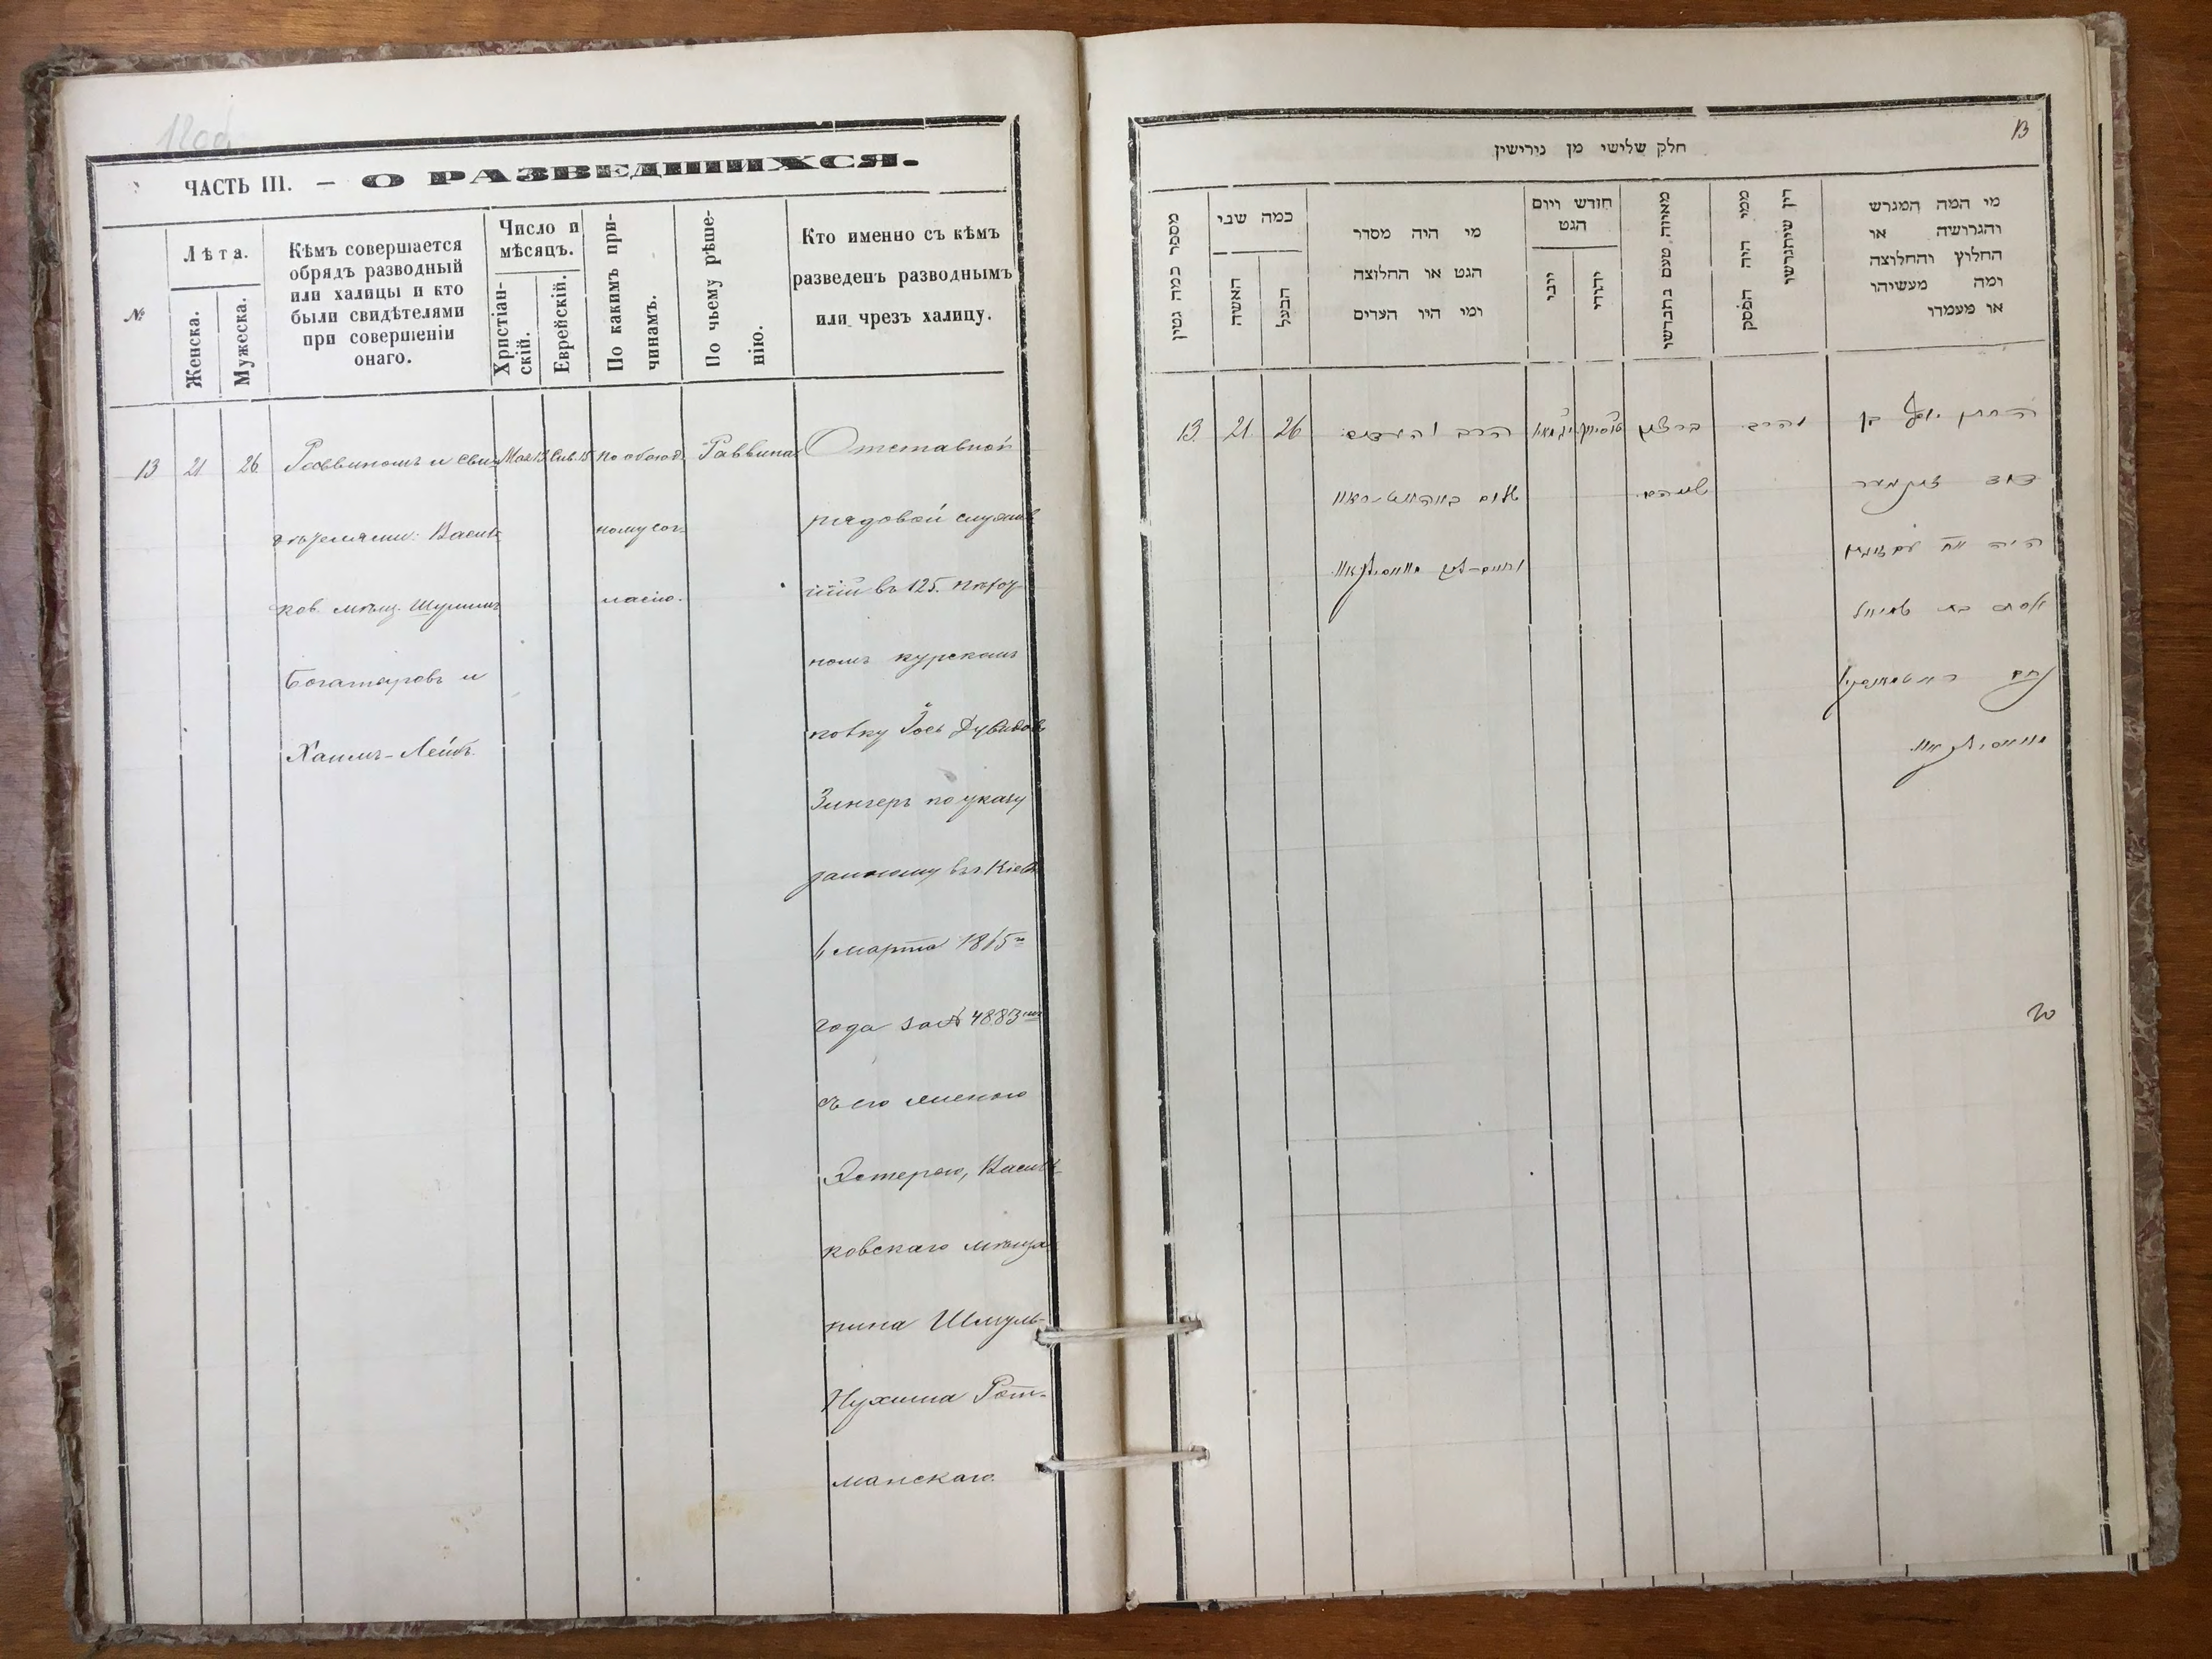 ЧАСТЬ III. — О РАЗВЕДШИХСЯ.
№
Лѣта.
Женска.
Мужеска.
Кѣмъ совершается
обрядъ разводный
или халицы и кто
были свидѣтелями
при совершеніи
онаго.
Число и
мѣсяцъ.
Христіан-
скій.
Еврейскій.
По какимъ при-
чинамъ.
По чьему рѣше-
нію.
Кто именно съ кѣмъ
разведенъ разводнымъ
или чрезъ халицу.
13
21
26
Раввиномъ и сви-
дѣтелями: Василь
ков. мѣщ. Шулимъ
Богатыровъ и
Хаимъ-Лейбъ
Мая 13
Сив. 15
по обоюд-
ному сог-
ласію.
Раввина
Отставной
рядовой служив
шій въ 125. пѣхот
номъ курскомъ
полку Іось Дувидовъ
Зингеръ по указу
данному въ г Кіевѣ
марта
года за № 4883
съ его женою
Эстерою, Василь
ковскаго мѣща
нина Шмуль-
Нухима Рот-
манскаго.
13
חלק שלישי מן גירישין
מספר כמה גטין
כמה שני
האשה
הבעל
מי היה מסדר
הגט או החלוצה
ומי היו העדים
חודש ויום
הגט
יוני
יהודי
מאיזה טעם נתגרשו
ממי היה הפסק
דין שיתגרשו
מי המה המגרש
והגרושה או
החלוץ והחלוצה
ומה מעשיהו
או מעמדו
13
21
26
הרב והעדים
שלום
ברצון
שניהם
הרב
יוסף בן
דוד זינגער
אסתר בת שמואל
נחום